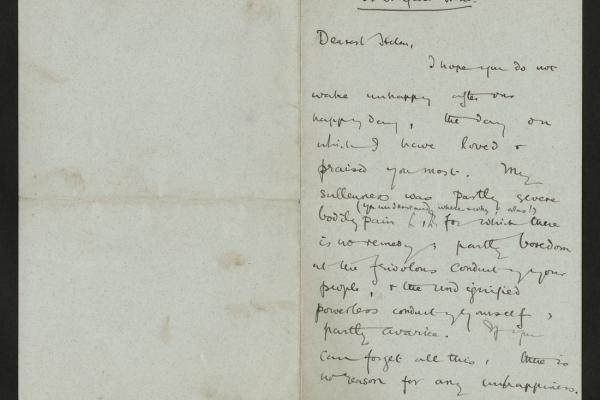 Dearest Helen,
I hope you do not
wake unhappy after our
happy day, the day on
which I have loved &
praised you most. My
sullenness was partly severe
(you understand where & why, alas!)
bodily pain for which there
is no remedy; partly boredom
at the frivolous conduct of your
people, & the undignified
powerless conduct of yourself;
partly avarice. If you
can forget all this, there is
no reason for any unhappiness.